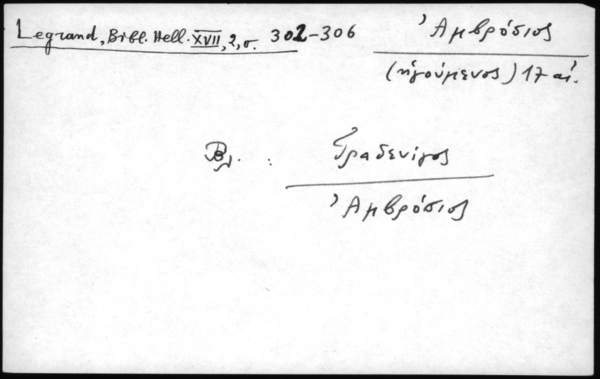 Legrand, Bibl. Hell. XVII, 2, σ. 302-306
Ἀμβρόσιος
(ἡγούμενος) 17 αἰ.
Βλ. : Γραδενίγος
Ἀμβρόσιος